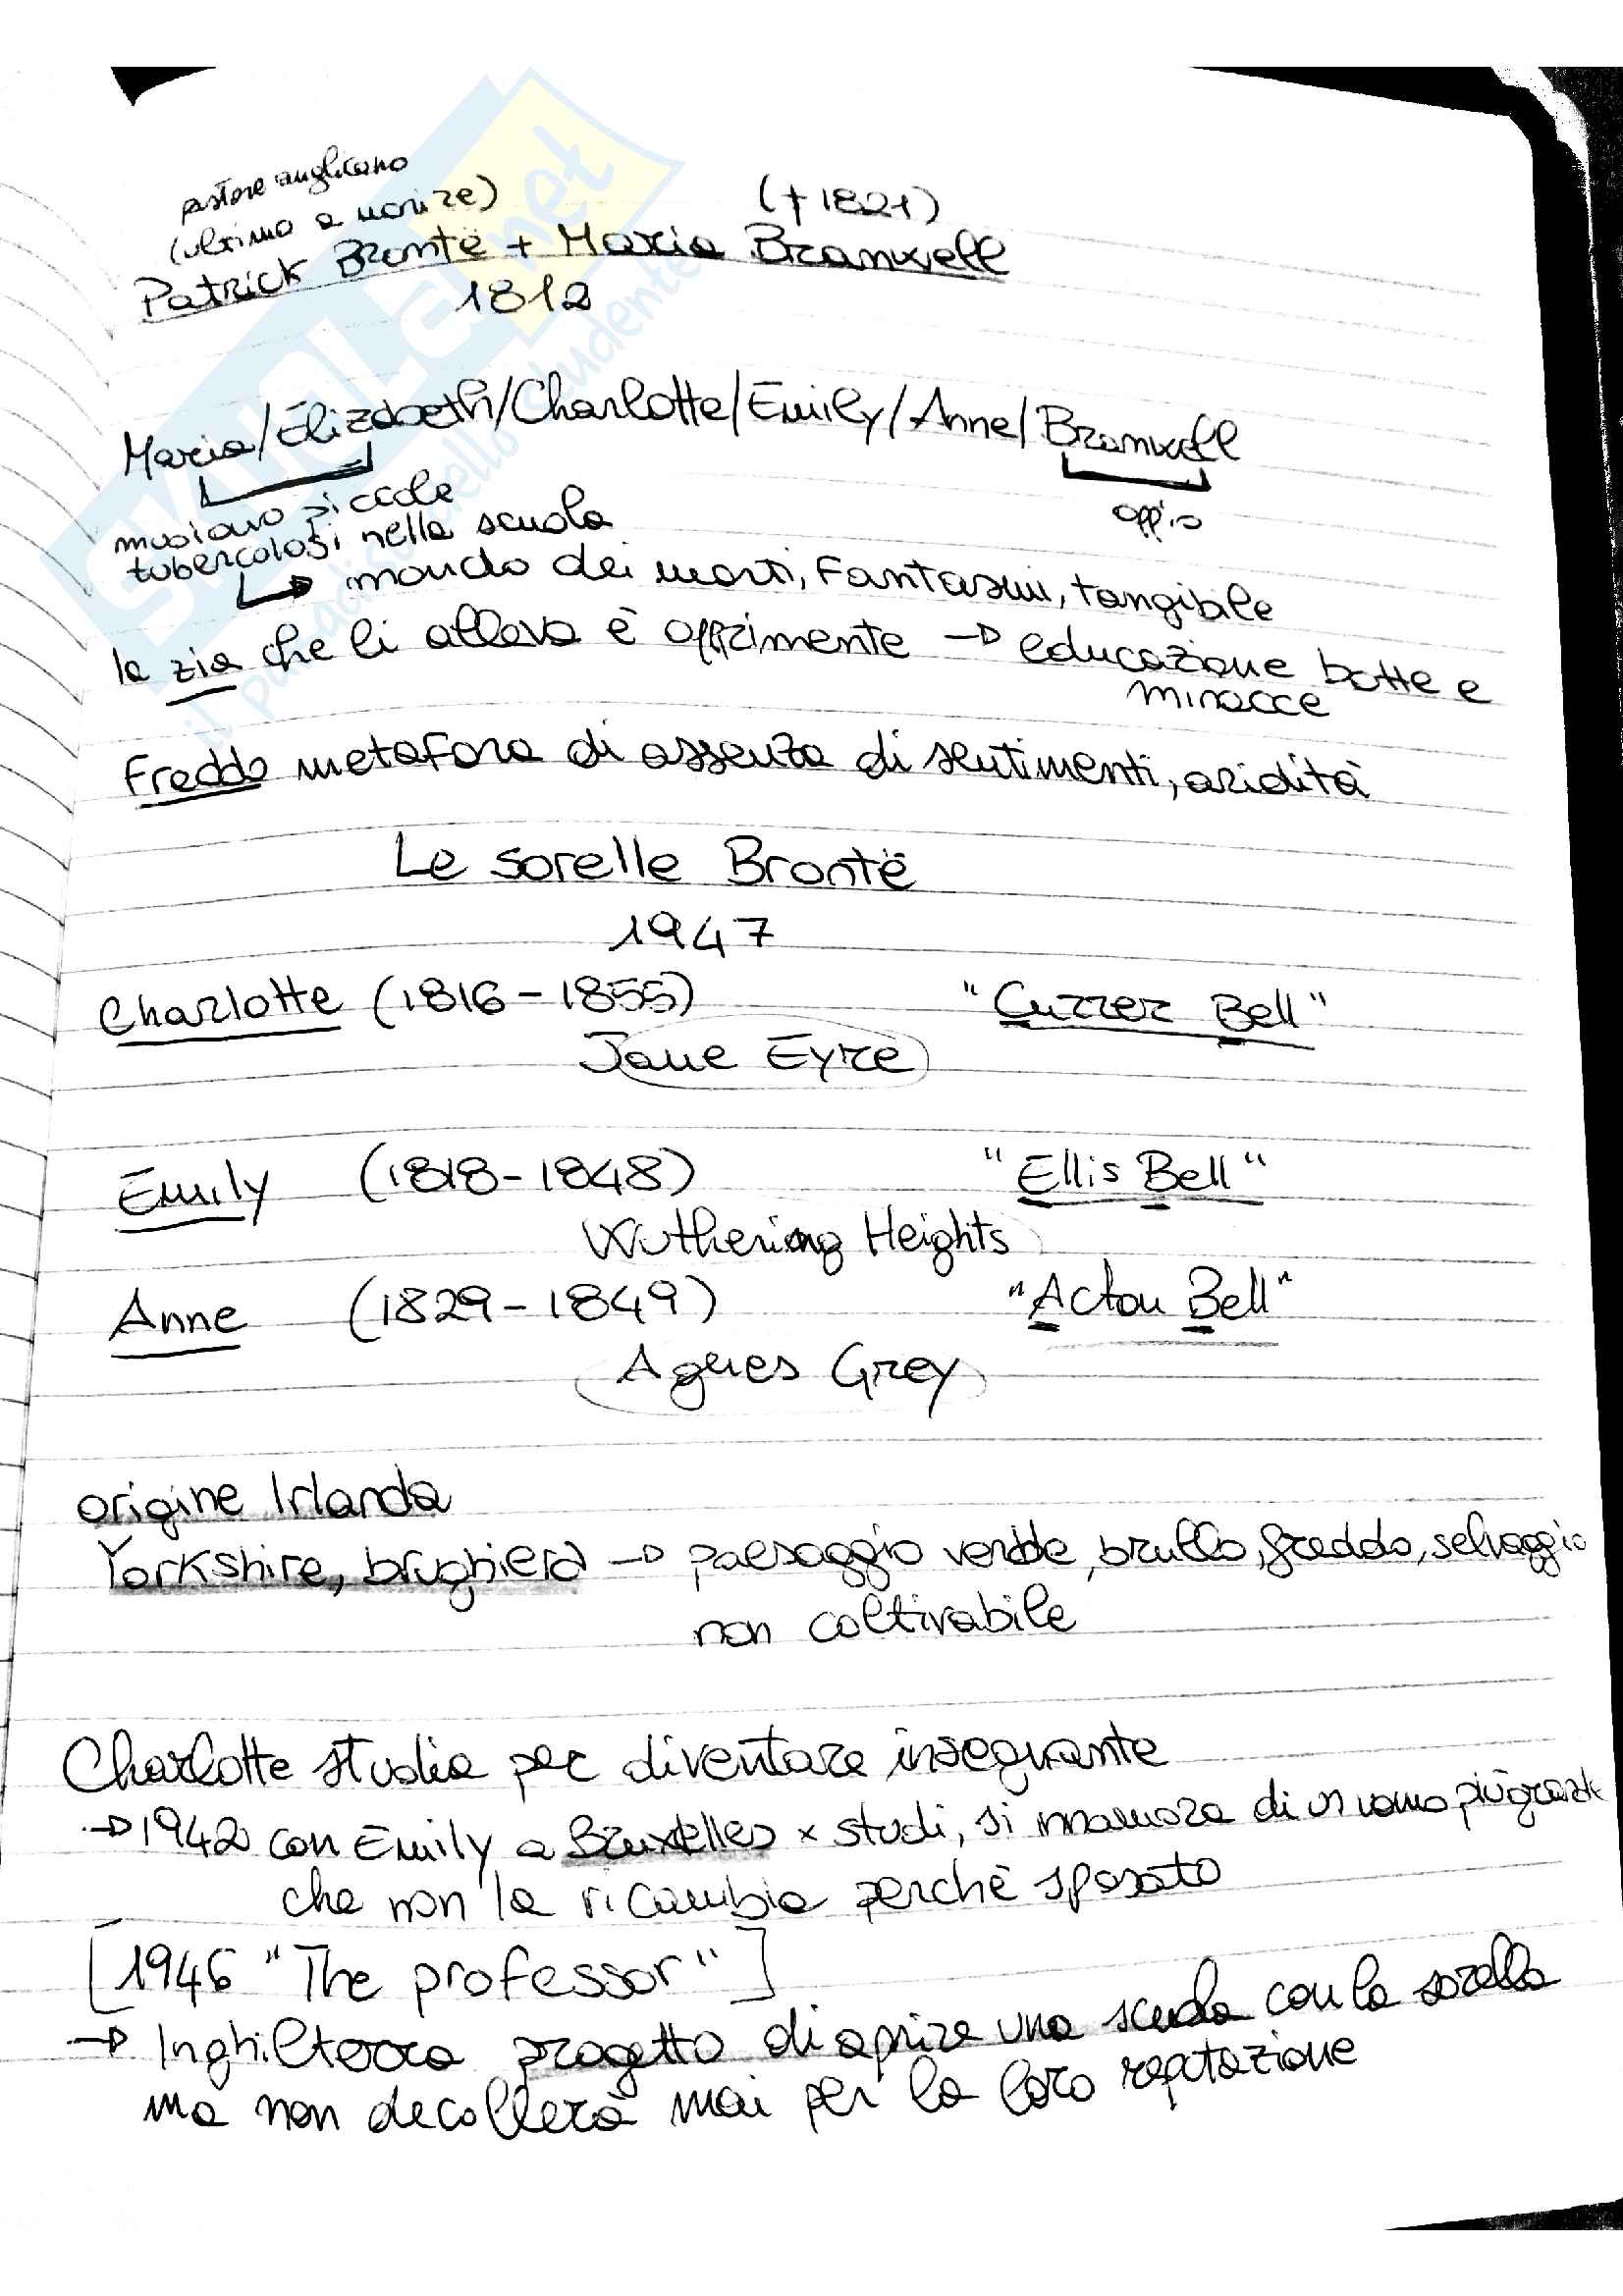 pastore anglicano
(ultimo a morire)
(† 1821)
Patrick Brontë + Maria Branwell
1812
Maria/Elizabeth/Charlotte/Emily/Anne/Branwell
muoiono piccole
oppio
tubercolosi nella scuola
↳ mondo dei morti, Fantasmi, tangibile
la zia che li alleva è opprimente → educazione botte e
minacce
Freddo metafora di assenza di sentimenti, aridità
Le sorelle Brontë
1947
Charlotte (1816-1855) "Currer Bell"
Jane Eyre
Emily (1818-1848) "Ellis Bell"
Wuthering Heights
Anne (1829-1849) "Acton Bell"
Agnes Grey
origine Irlanda
Yorkshire, brughiera → paesaggio verde, brullo, freddo, selvaggio
non coltivabile
Charlotte studia per diventare insegnante
→ 1942 con Emily a Bruxelles x studi, si innamora di un uomo più grande
che non la ricambia perchè sposato
[1946 "The professor"]
→ Inghilterra progetto di aprire una scuola con la sorella
ma non decollerà mai per la loro reputazione
SKUOLA.net
il paradiso dello studente